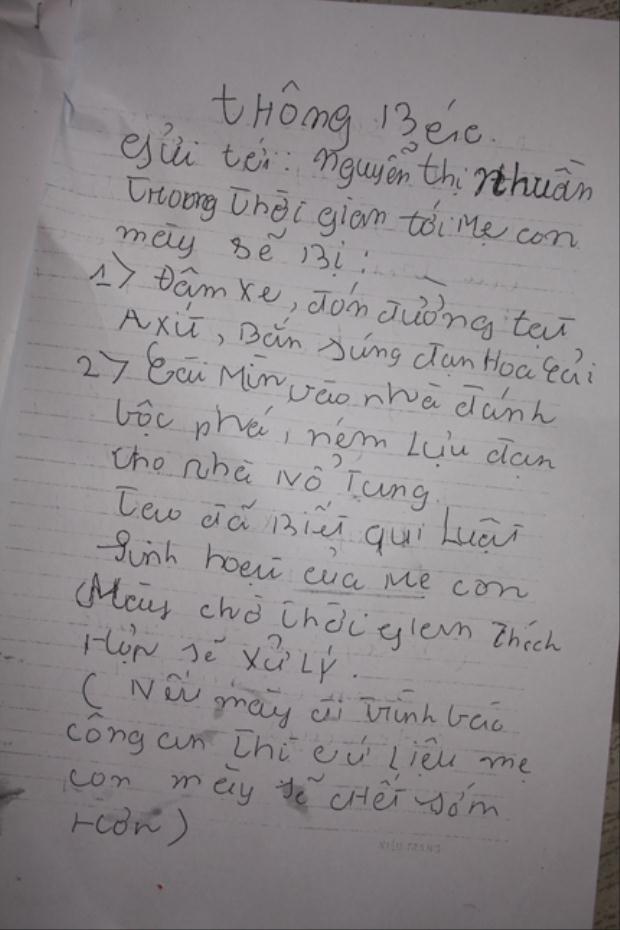 THÔNG BÁO
Gửi tới: Nguyễn Thị Nhuần
Trong Thời gian tới Mẹ con
mày sẽ Bị:
1> Đâm xe, đón đường tạt
Axít, Bắn súng đạn Hoa Cải
2> Cài Mìn vào nhà đánh
bộc phá, ném Lựu đạn
cho nhà Nổ Tung
Tao đã Biết qui Luật
sinh hoạt của Mẹ con
Mày chờ Thời gian Thích
Hợp sẽ xử Lý.
(Nếu mày đi trình báo
công an thì cứ liệu mẹ
con mày sẽ chết sớm
Hơn)